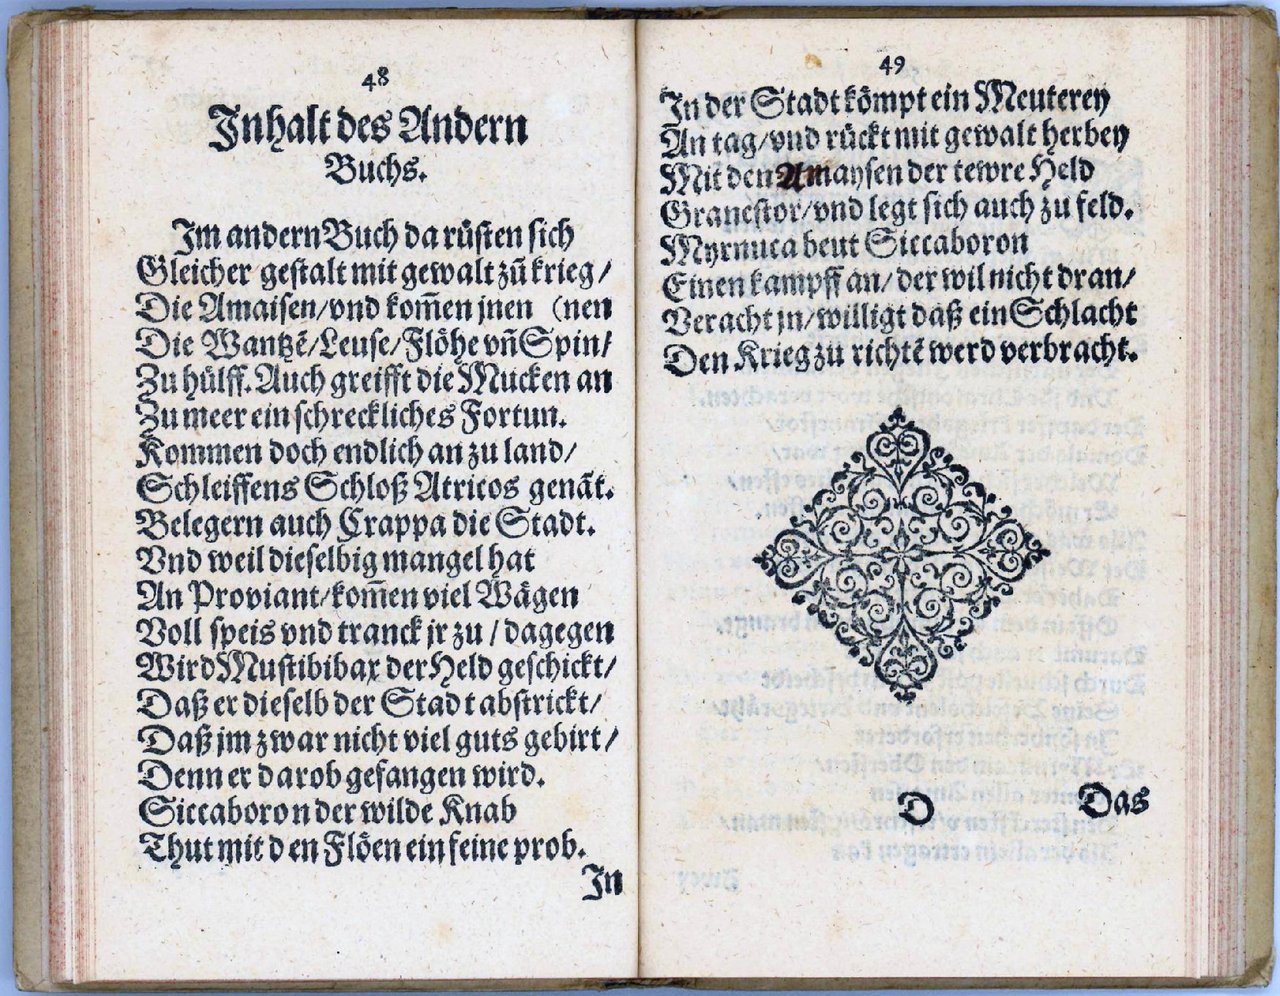 48
Inhalt des Andern
Buchs.
Im andern Buch da rüsten sich
Gleicher gestalt mit gewalt zū krieg/
Die Amaisen/vnd kom̄en jnen (nen
Die Wantzē/Leuse/Flöhe vn̄ Spin/
Zu hülff. Auch greifft die Mucken an
Zu meer ein schreckliches Fortun.
Kommen doch endlich an zu land/
Schleiffens Schloß Atricos genāt.
Belegern auch Crappa die Stadt.
Vnd weil dieselbig mangel hat
An Proviant/kom̄en viel Wägen
Voll speis vnd tranck jr zu/dagegen
Wird Mustibibax der Held geschickt/
Daß er dieselb der Stadt abstrickt/
Daß jm zwar nicht viel guts gebirt/
Denn er darob gefangen wird.
Siccaboron der wilde Knab
Thut mit den Flöen ein feine prob.
In
49
In der Stadt kömpt ein Meuterey
An tag/vnd rückt mit gewalt herbey
Mit den Amaysen der tewre Held
Granestor/vnd legt sich auch zu feld.
Myrnuca beut Siccaboron
Einen kampff an/der wil nicht dran/
Veracht jn/willigt daß ein Schlacht
Den Krieg zu richtē werd verbracht.
D Das